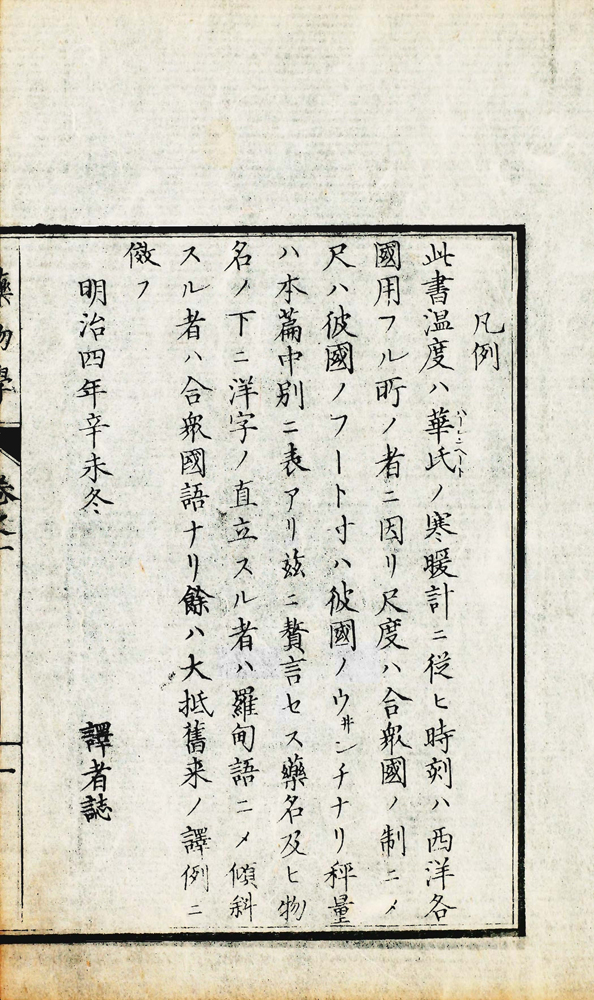 凡例
此書温度ハ華氏ノ寒暖計ニ従ヒ時刻ハ西洋各
國用フル所ノ者ニ因リ尺度ハ合衆國ノ制ニメ
尺ハ彼國ノフート寸ハ彼國ノウ井ンチナリ秤量
ハ本篇中別ニ表アリ茲ニ贅言セス藥名及ヒ物
名ノ下ニ洋字ノ直立スル者ハ羅甸語ニメ傾斜
スル者ハ合衆國語ナリ餘ハ大抵舊来ノ譯例ニ
倣フ
明治四年辛未冬
譯者誌
藥物學
卷之一
一